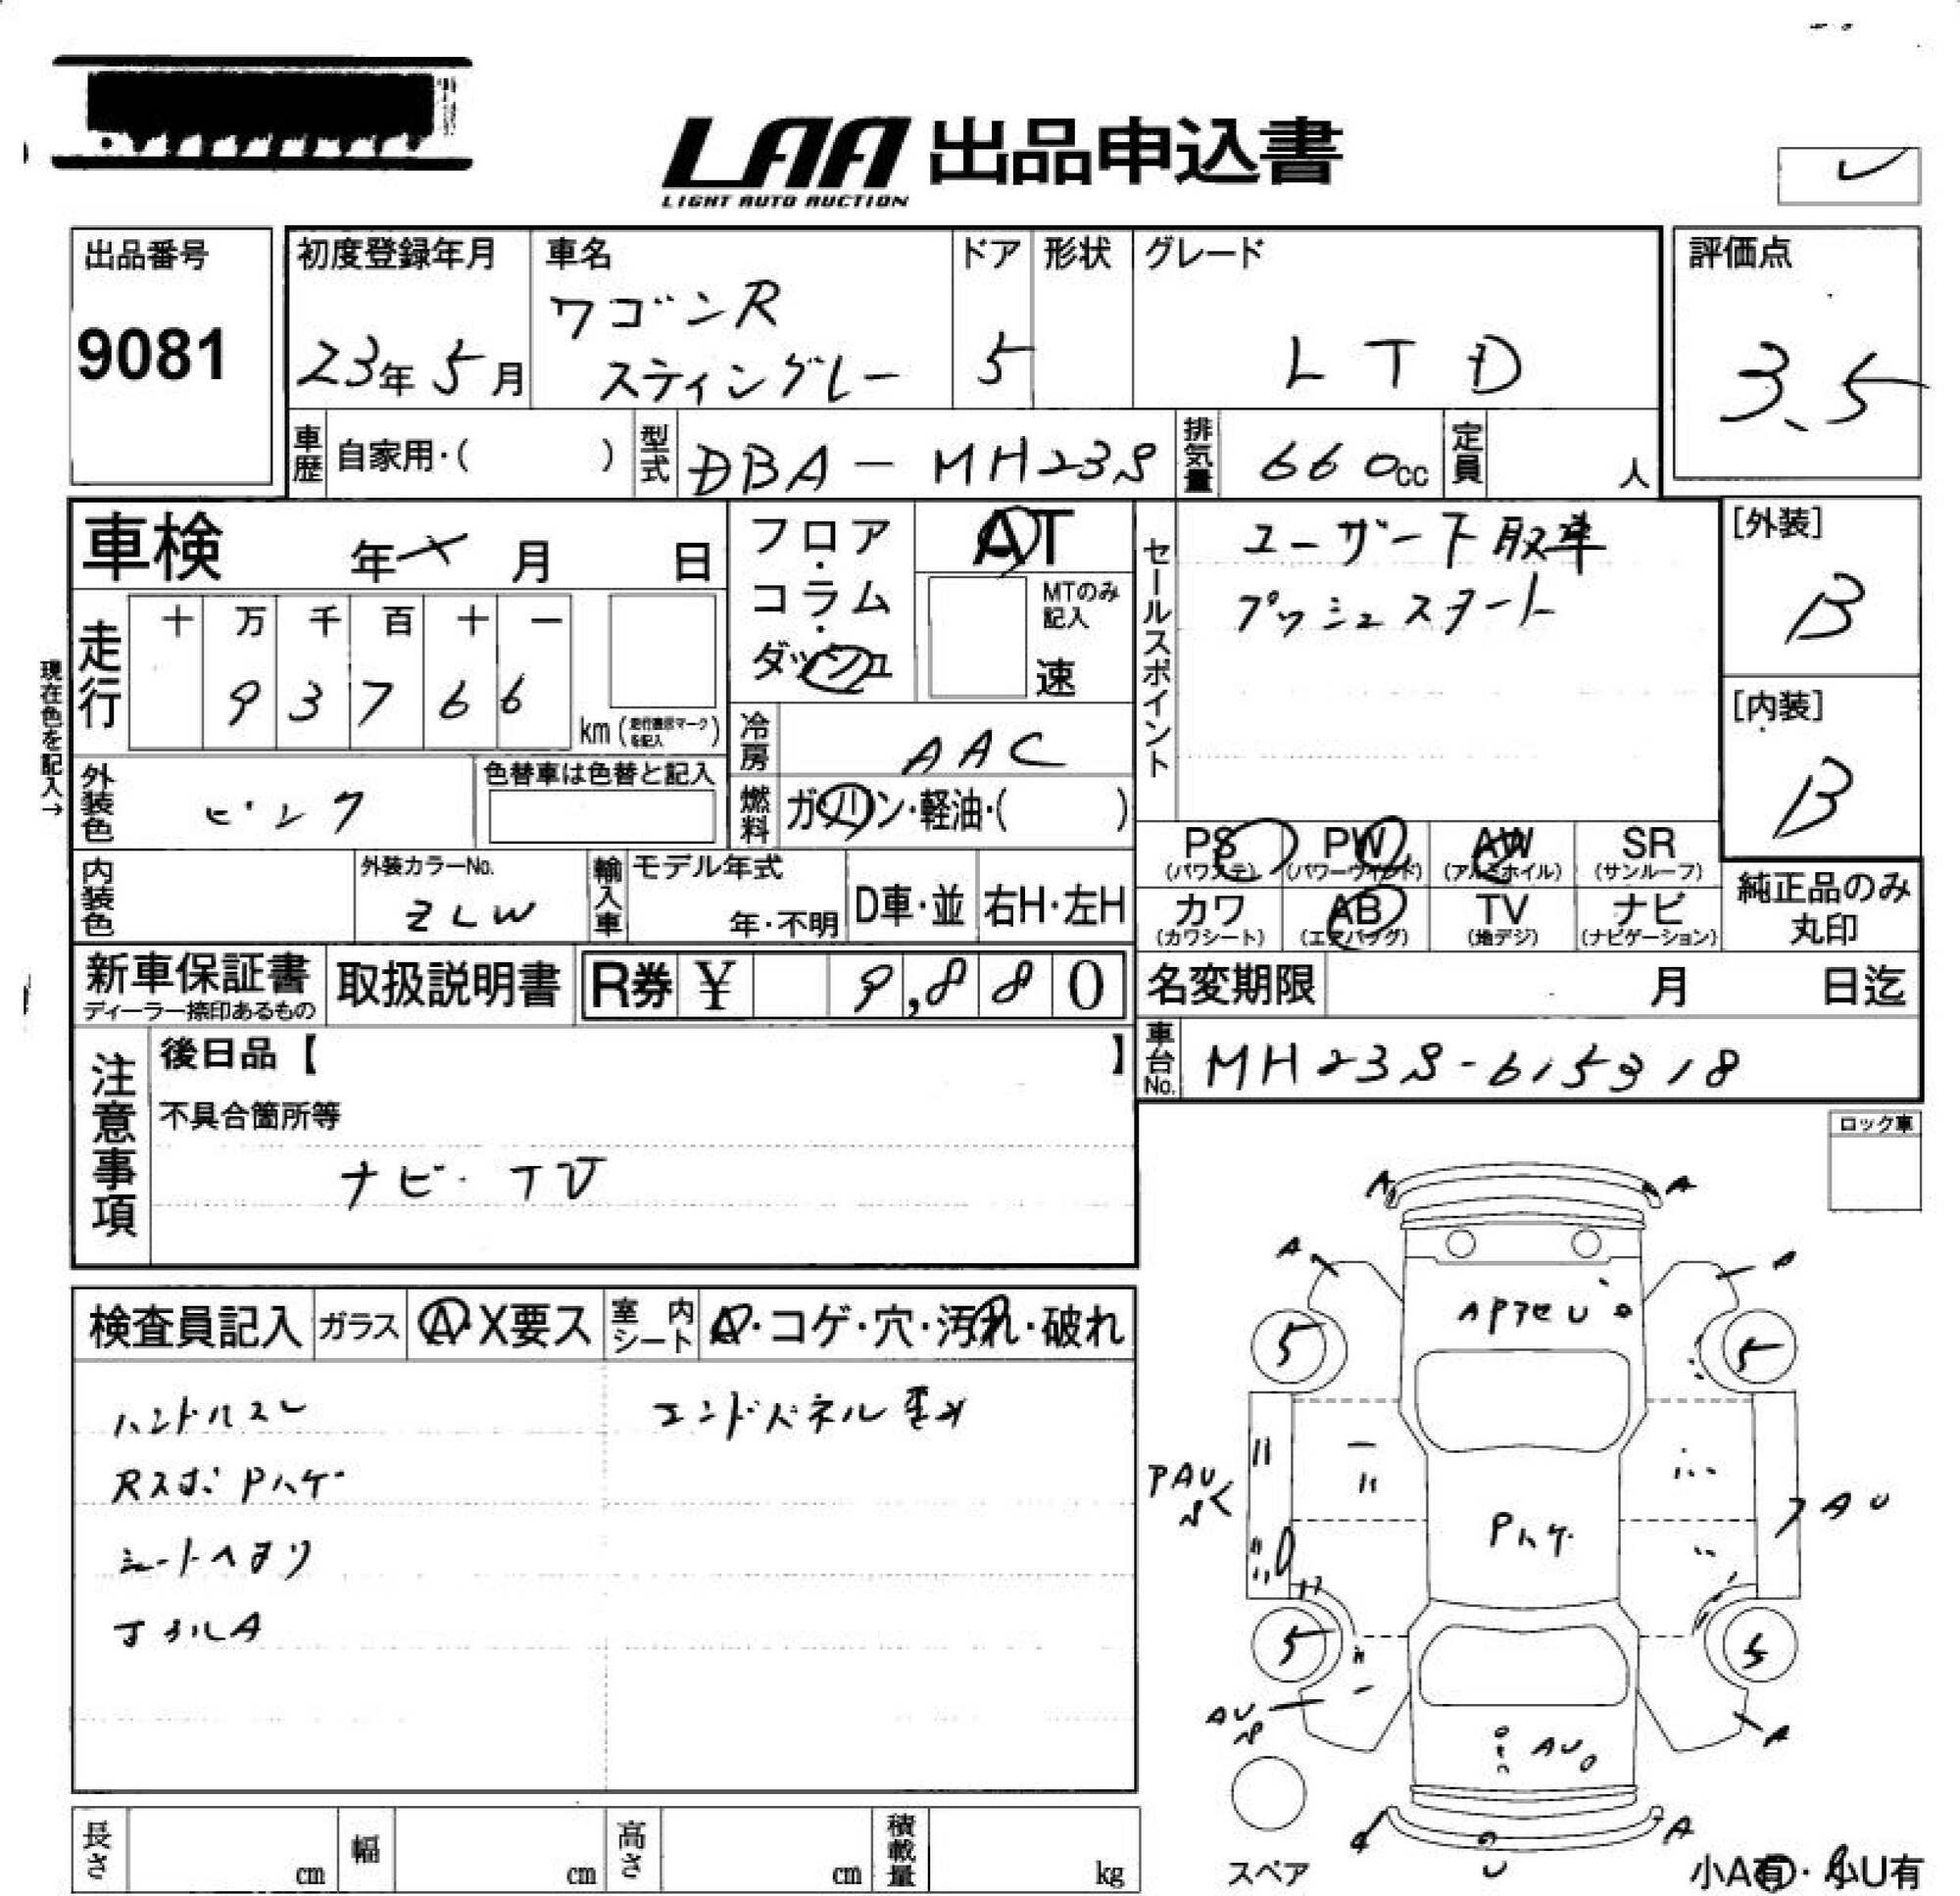 LAA 出品申込書
LIGHT AUTO AUCTION
出品番号
9081
初度登録年月
23年 5月
車名
ワゴンR
スティングレー
ドア
5
形状
グレード
LTD
評価点
3.5
車歴
自家用・( )
型式
DBA-MH23S
排気量
660cc
定員
人
車検
年 月 日
フロア・
コラム・
ダッシュ
AT
MTのみ
記入
速
セールスポイント
ユーザー下取車
プッシュスタート
[外装]
B
[内装]
B
現在色を記入→
走行
十 万 千 百 十 一
9 3 7 6 6
km
冷房
AAC
燃料
ガソリン・軽油・( )
外装色
ピンク
色替車は色替と記入
PS (パワステ)
PW (パワーウィンド)
AW (アルミホイル)
SR (サンルーフ)
カワ (カワシート)
AB (エアバッグ)
TV (地デジ)
ナビ (ナビゲーション)
純正品のみ
丸印
内装色
外装カラーNo.
ZLW
輸入車
モデル年式
年・不明
D車・並
右H・左H
新車保証書
ディーラー捺印あるもの
取扱説明書
R券 ¥ 9,880
名変期限
月 日迄
車台No.
MH23S-615318
注意事項
後日品【 】
不具合箇所等
ナビ・TV
ロック車
検査員記入
ガラス
A・X要ス
室内シート
A・コゲ・穴・汚れ・破れ
ハンドルスレ
エンドパネル歪み
Rスポ Pハゲ
シートヘタリ
A
A
A
A
U
5
5
PAU
Pハゲ
AU
5
5
AU
AU
A
A
スペア
小A有・小U有
長さ
cm
幅
cm
高さ
cm
積載量
kg